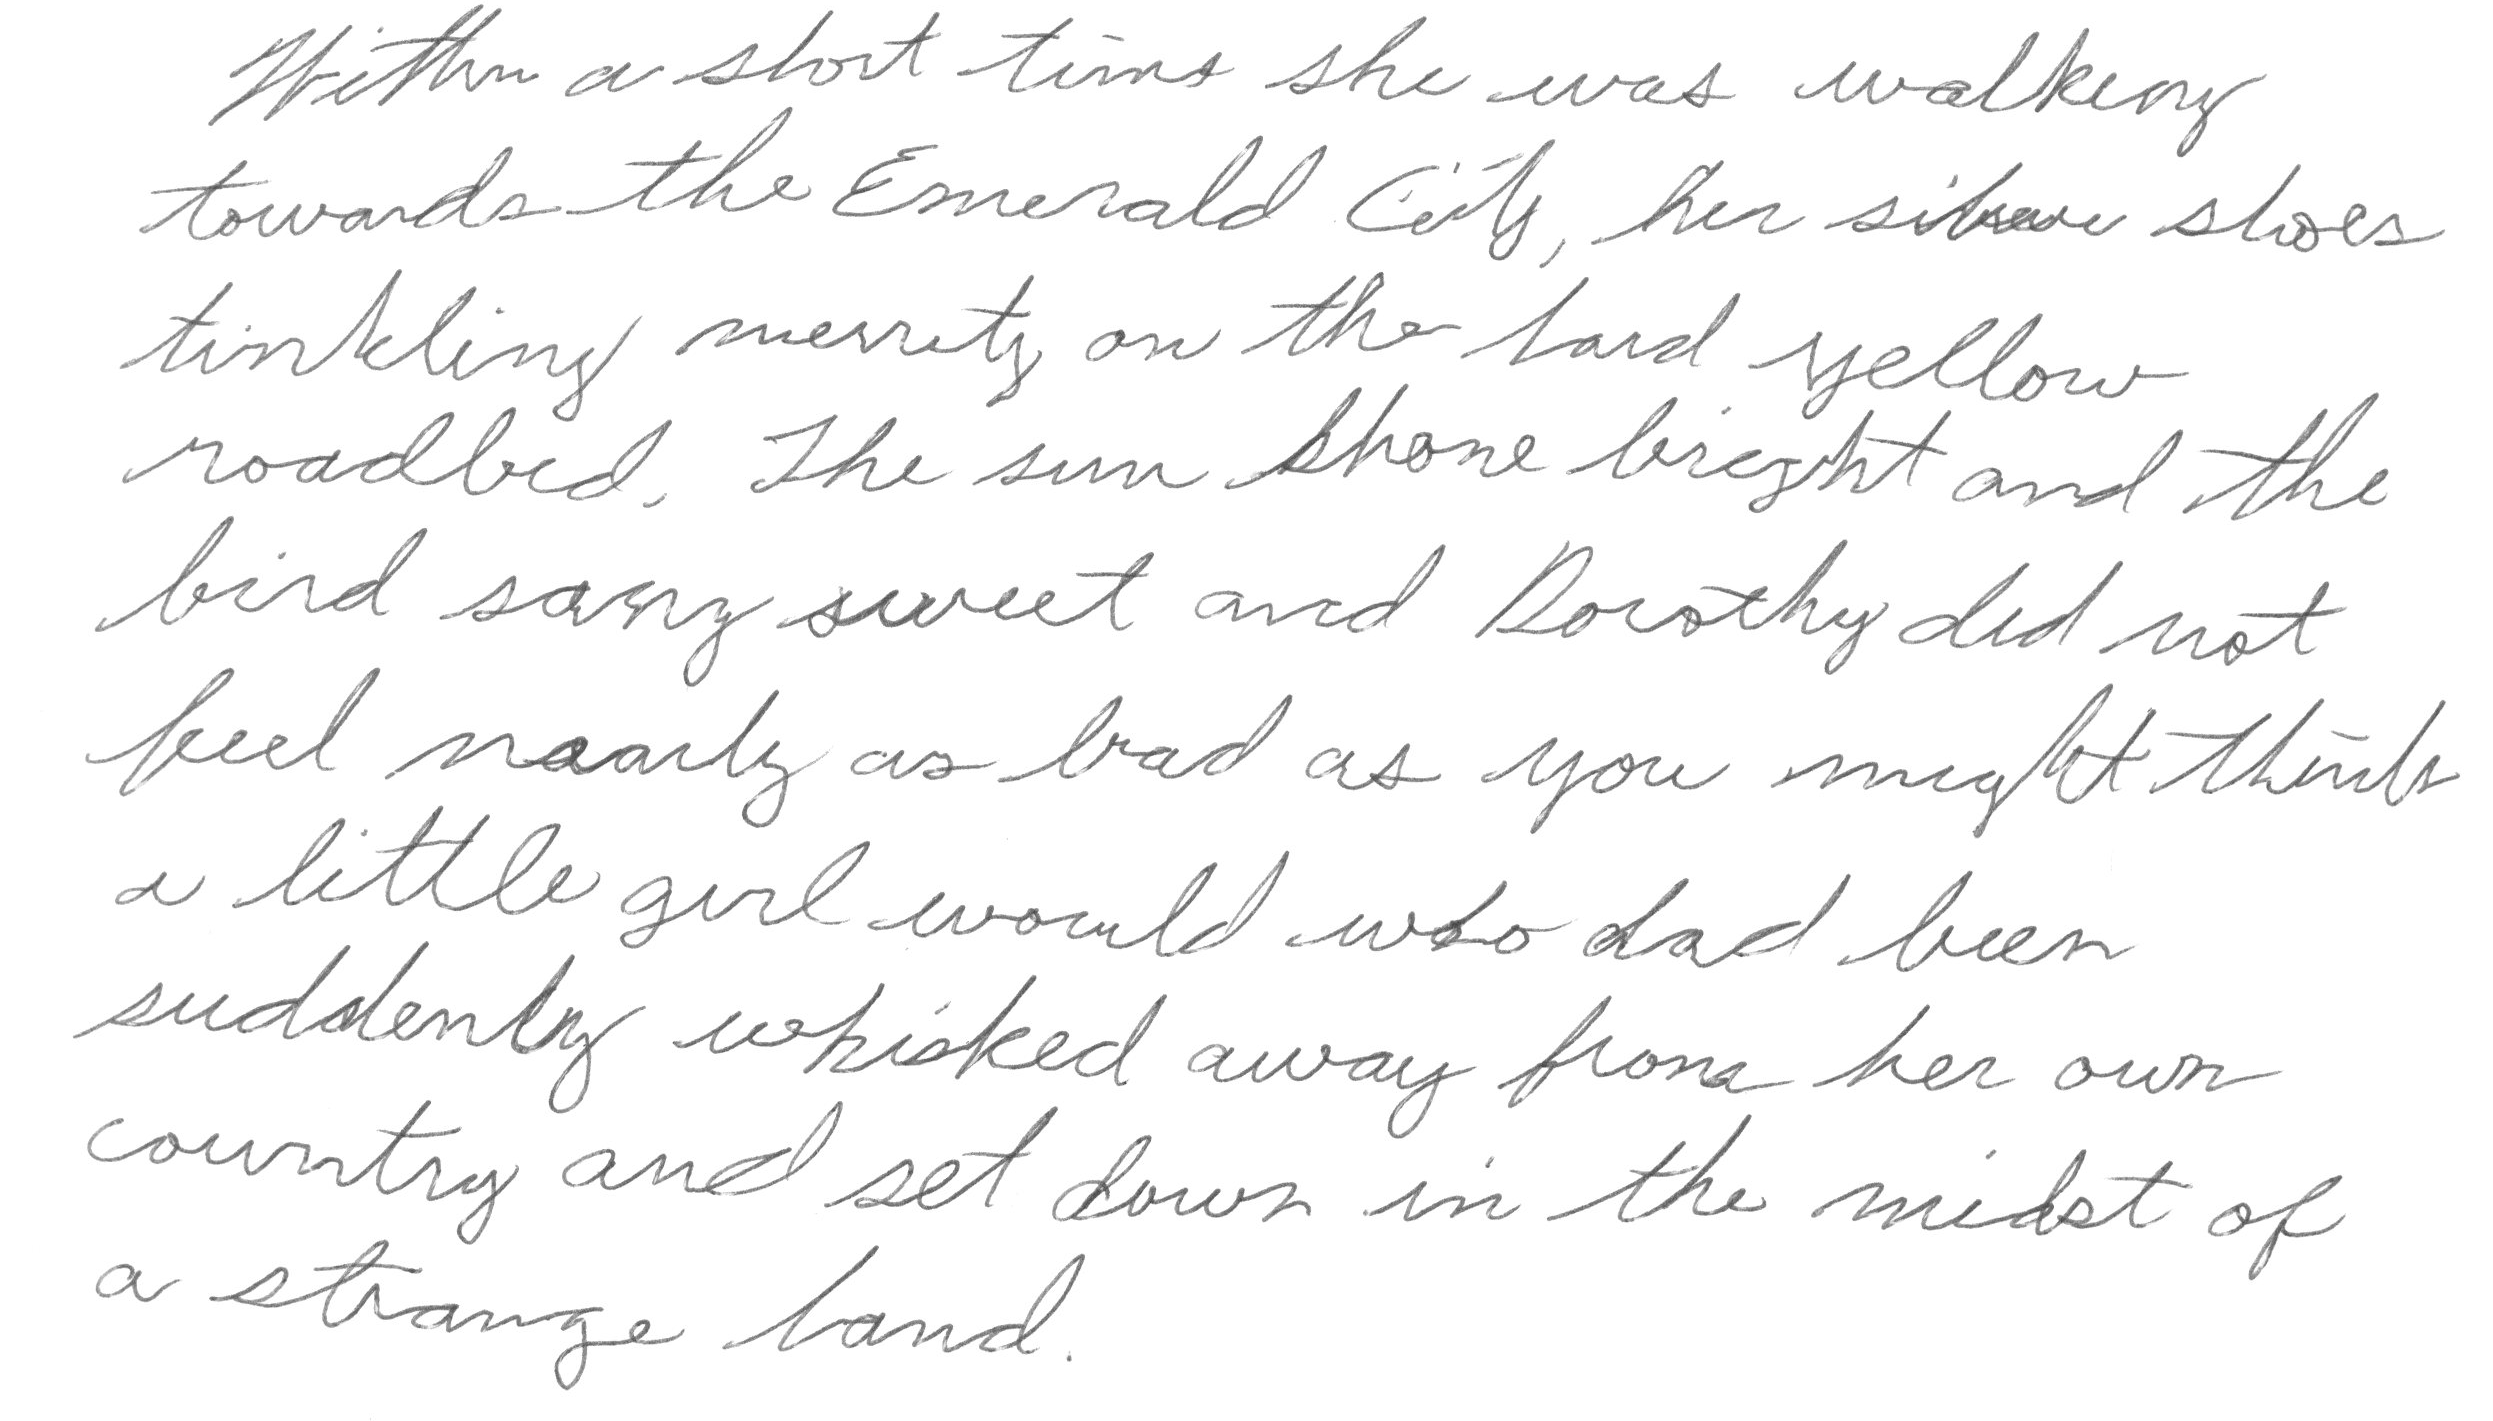 Within a short time she was walking
towards the Emerald City, her silver shoes
tinkling merrily on the hard yellow
roadbed. The sun shone bright and the
bird sang sweet and Dorothy did not
feel nearly as bad as you might think
a little girl would who had been
suddenly whisked away from her own
country and set down in the midst of
a strange land.